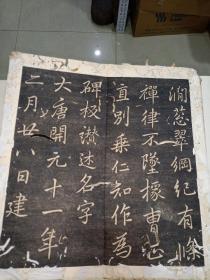 澗葱翠綱紀有條
禪律不墜掾曹正
直別乘仁知作為
碑板讚述名字
大唐開元十一年
二月廿八日建